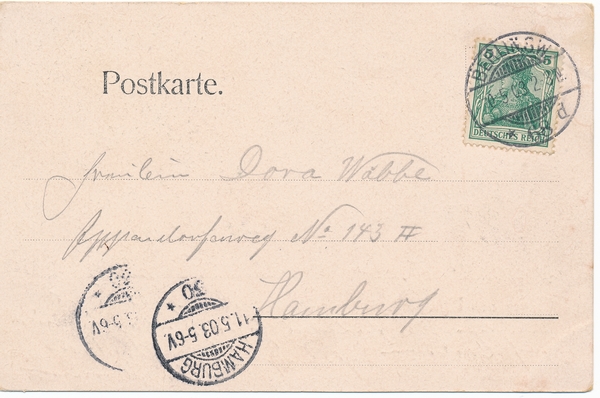 Postkarte.
BERLIN SW
5
DEUTSCHES REICH
Fräulein Dora Wäbbe
No 143 II
Hamburg
11.5.03.5-6V.
HAMBURG
30
5-6V.